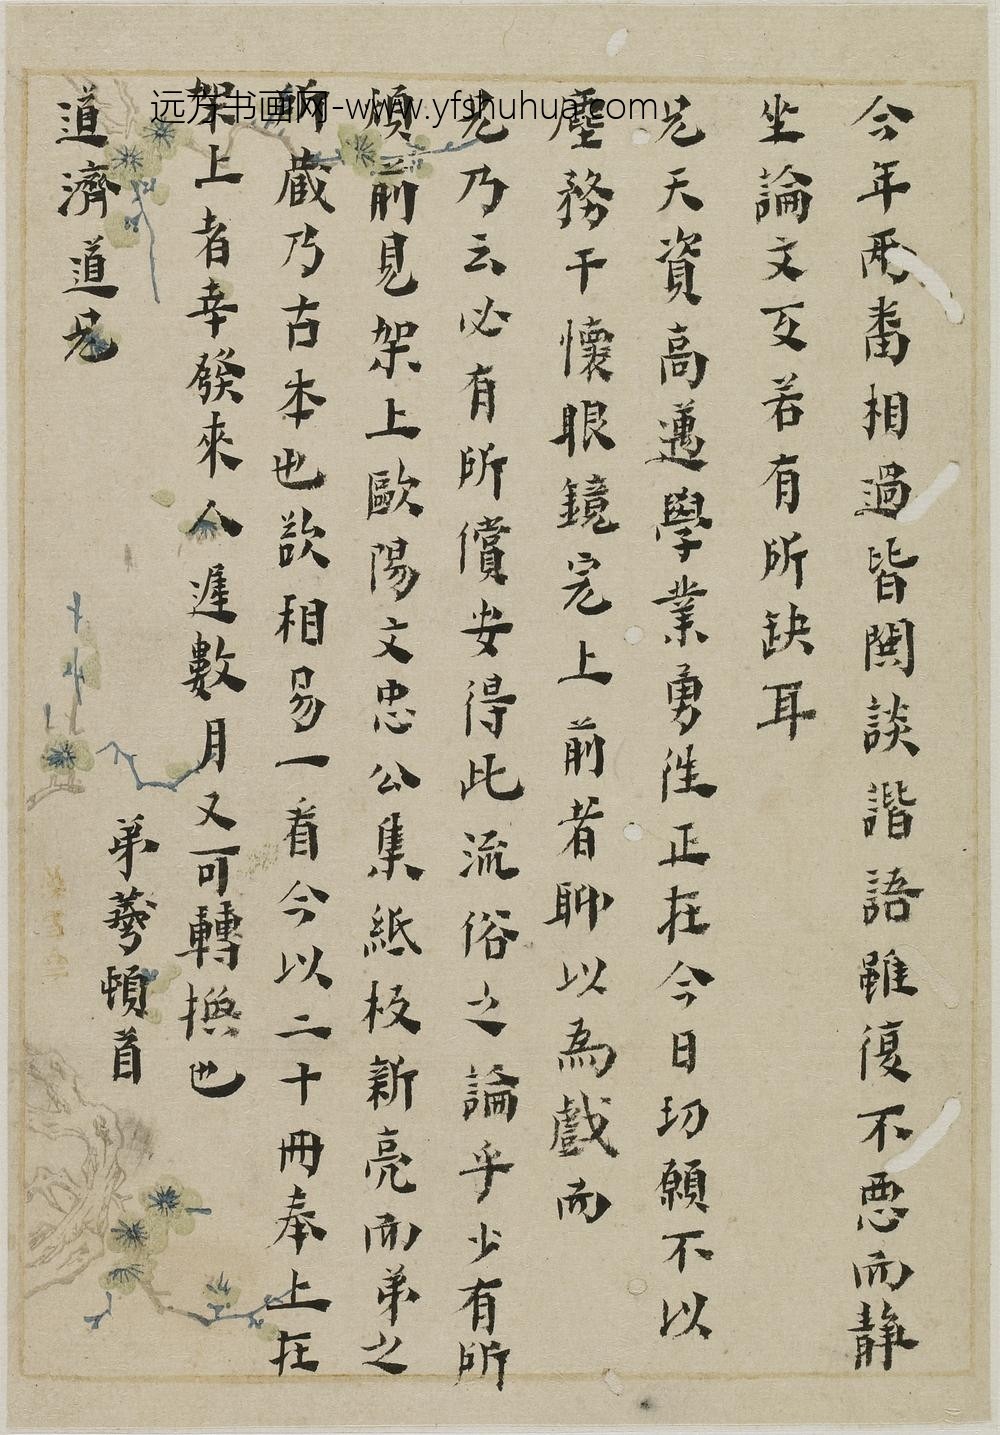 远方书画网-www.yfshuhua.com
今年兩番相過皆闊談諧語雖復不惡而静
坐論文互若有所缺耳
兄天資高邁學業勇往正在今日切願不以
塵務干懷眼鏡完上前者聊以為戲而
兄乃云必有所償安得此流俗之論乎少有所
煩前見架上歐陽文忠公集紙板新亮而弟之
所蔵乃古本也欲相易一看今以二十冊奉上在
架上者幸發來人遲數月又可轉換也
道濟道兄
弟萼頓首